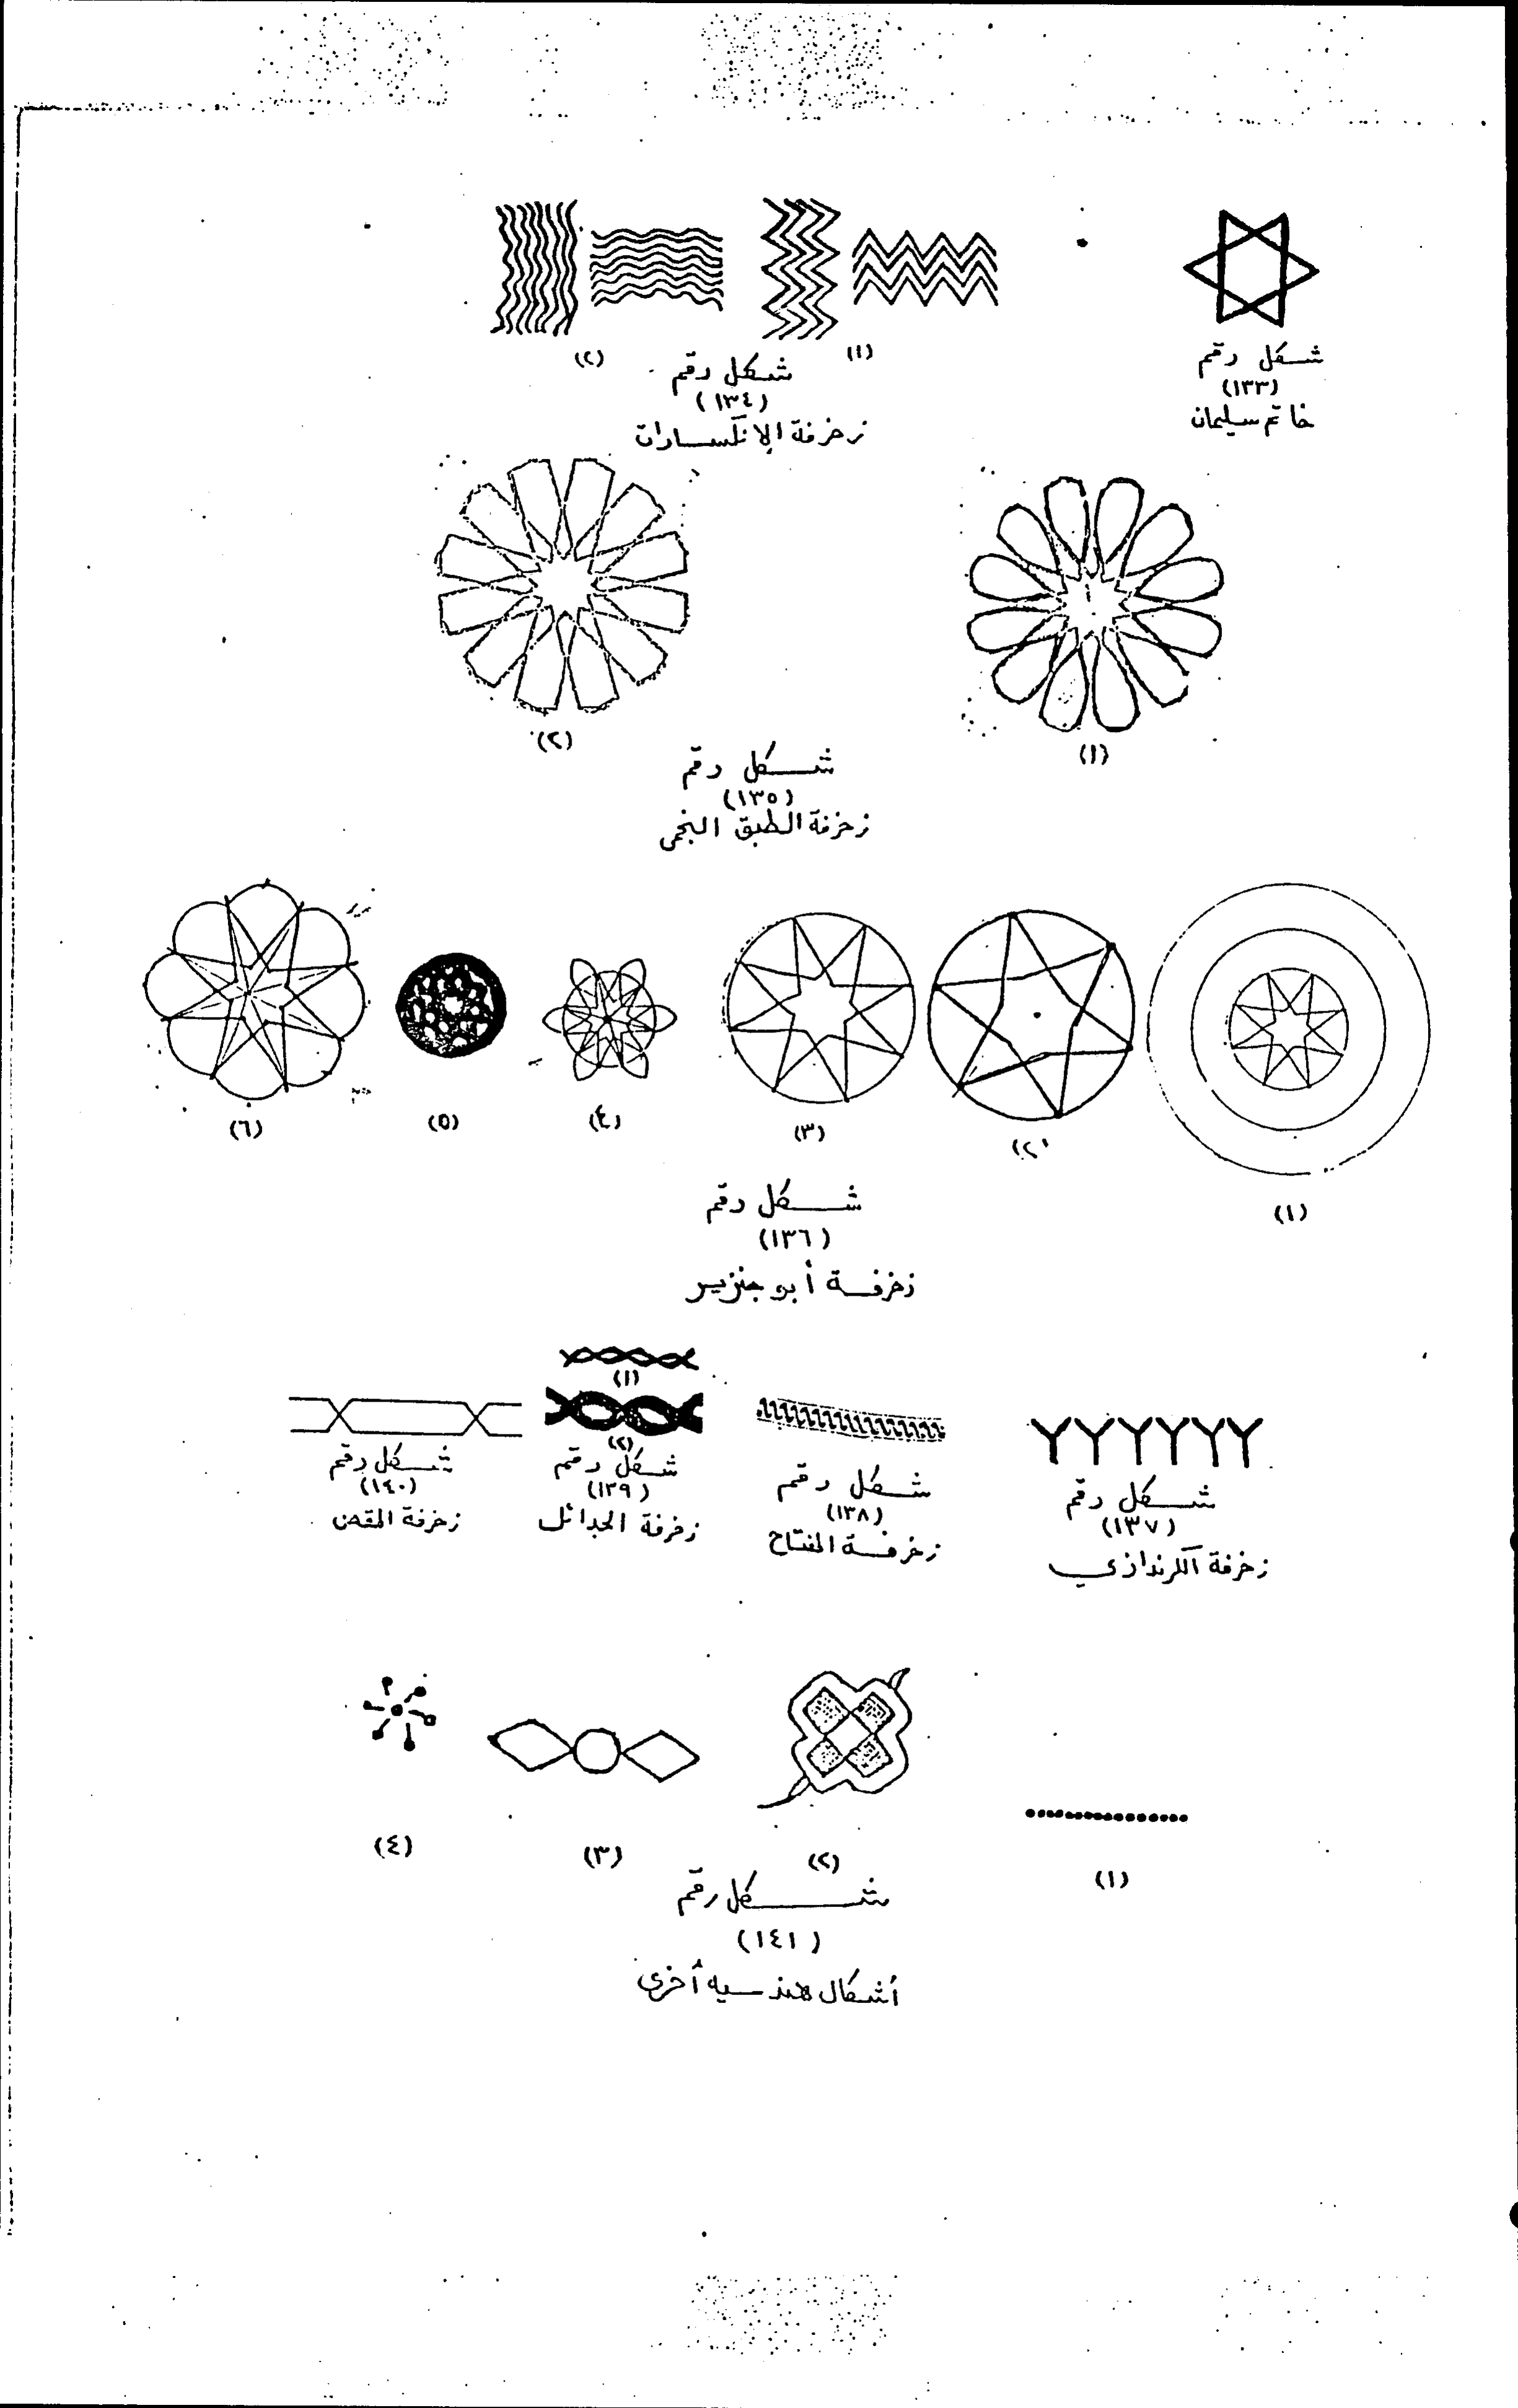 شكل رقم
(١٣٣)
خاتم سليمان
(١)
(٢)
شكل رقم
(١٣٤)
زخرفة الإنكسارات
(١)
(٢)
شكل رقم
(١٣٥)
زخرفة الطبق النجمى
(١)
(٢)
(٣)
(٤)
(٥)
(٦)
شكل رقم
(١٣٦)
زخرفة أبو جنزير
شكل رقم
(١٣٧)
زخرفة الكرندازي
شكل رقم
(١٣٨)
زخرفة المفتاح
(١)
(٢)
شكل رقم
(١٣٩)
زخرفة الجدائل
شكل رقم
(١٤٠)
زخرفة المقص
(١)
(٢)
(٣)
(٤)
شكل رقم
(١٤١)
أشكال هندسيه أخرى